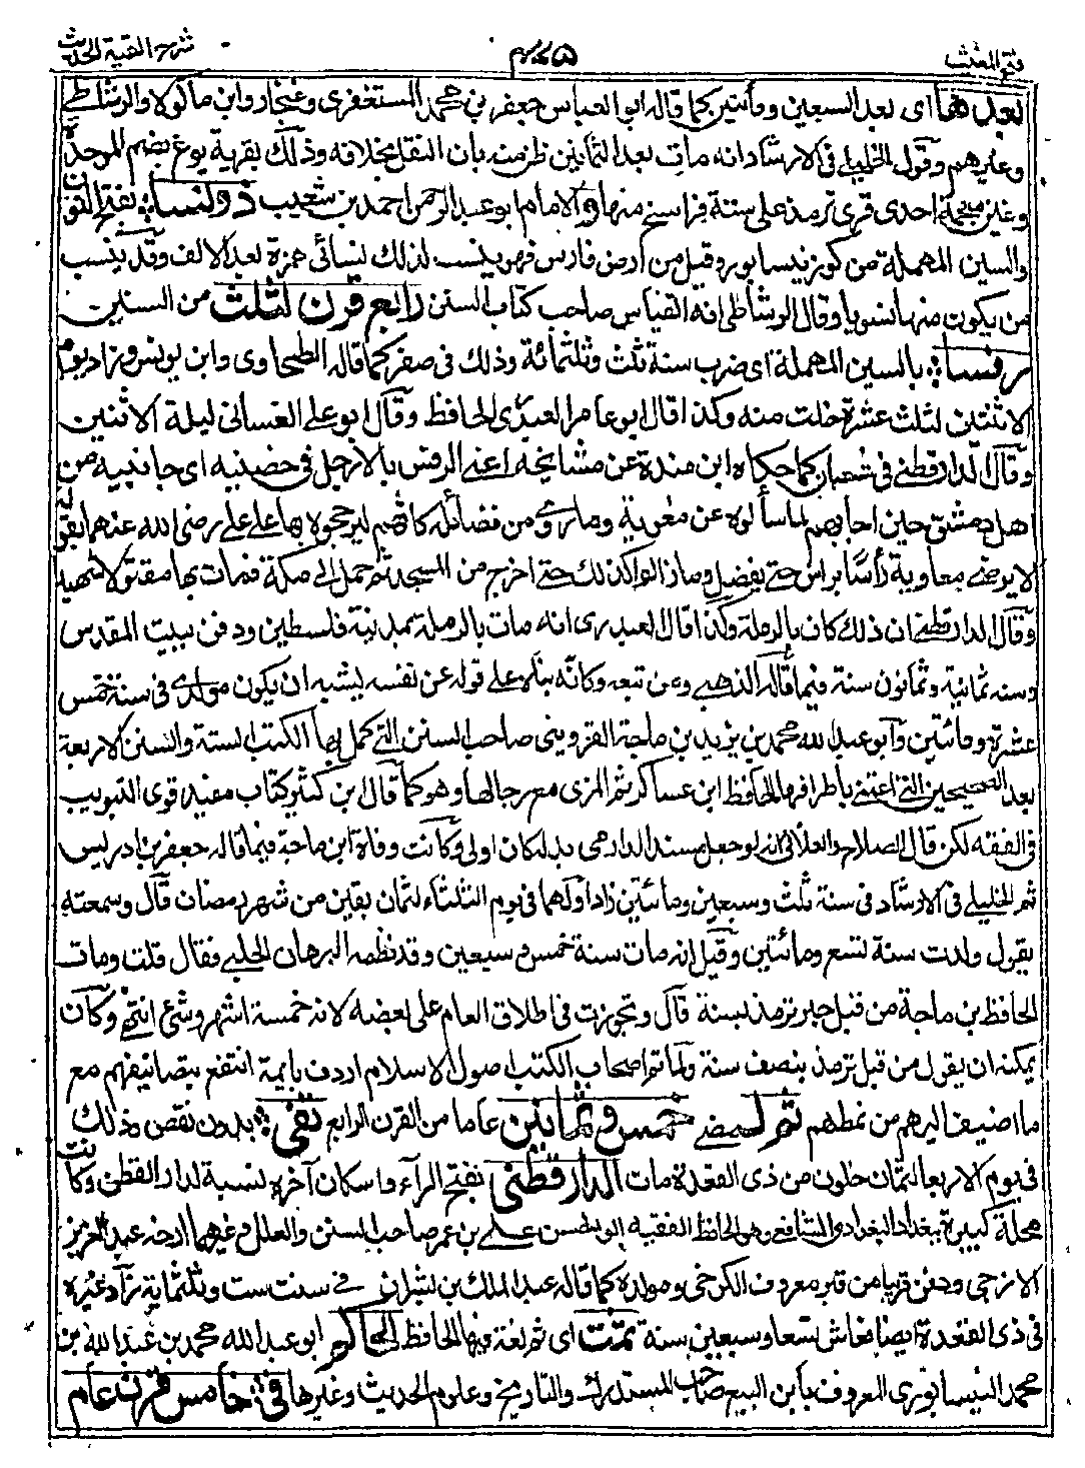 فتح المغيث ٤٧٥ شرح الفية الحديث
بعدها اى بعد السبعين ومأتين كما قاله ابو العباس جعفر بن محمد المستغفرى وغنجار وابن ماكولا والرشاطى
وغيرهم وقول الخليلى فى الارشاد انه مات بعد الثمانين ظن منه بان النقل بخلافه وذلك بقرية بوغ بضم الموحدة
وغين معجمة احدى قرى ترمذ على ستة فراسخ منها والامام ابو عبد الرحمن احمد بن شعيب ذو نسا بفتح النون
والسين المهملة من كور نيسابور وقيل من ارض فارس فهو ينسب لذلك نسائى همزة بعد الالف وقد ينسب
من يكون منها نسويا وقال الرشاطى انه القياس صاحب كتاب السنن رابع قرن لثلث من السنين
رفسا بالسين المهملة اى ضرب سنة ثلث وثلثمائة وذلك فى صفر كما قاله الطحاوى وابن يونس وزاد يوم
الاثنين لثلث عشرة خلت منه وكذا قال ابو عامر العبدرى الحافظ وقال ابو على الغسانى ليلة الاثنين
وقال الدارقطنى فى شعبان كما حكاه ابن مندة عن مشايخه اعنى الرفس بالارجل فى حضنيه اى جانبيه من
اهل دمشق حين اجابهم لما سألوه عن معوية وما روى من فضائله كانهم ليرجحوه بها على على رضى الله عنهما بقوله
لا يرضى معاوية رأسا براس حتى يفضل وما زالوا كذلك حتى اخرج من المسجد ثم حمل الى مكة فمات بها مقتولا شهيدا
وقال الدارقطنى ان ذلك كان بالرملة وكذا قال العبدرى انه مات بالرملة بمدينة فلسطين ودفن ببيت المقدس
وسنه ثمانية وثمانون سنة فيما قاله الذهبى ومن تبعه وكانه بناه على قوله عن نفسه يشبه ان يكون مولدى فى سنة خمس
عشرة ومائتين وابو عبد الله محمد بن يزيد بن ماجة القزوينى صاحب السنن التى كمل بها الكتب الستة والسنن الاربعة
بعد الصحيحين التى اعتنى باطرافها الحافظ ابن عساكر ثم المزى مع رجالها وهو كما قال ابن كثير كتاب مفيد قوى التبويب
فى الفقه لكن قال الصلاح العلائى انه لو جعل مسند الدارمى بدله كان اولى وكانت وفاة ابن ماجة فيما قاله جعفر بن ادريس
ثم الخليلى فى الارشاد فى سنة ثلث وسبعين ومائتين زاد اولهما فى يوم الثلثاء لثمان بقين من شهر رمضان قال وسمعته
يقول ولدت سنة تسع ومائتين وقيل انه مات سنة خمس وسبعين وقد نظمه البرهان الحلبى فقال قلت ومات
الحافظ بن ماجة من قبل حبر ترمذ بسنة قال وتجوزت فى اطلاق العام على بعضه لانه خمسة اشهر وشئ انتهى وكان
يمكنه ان يقول من قبل ترمذ بنصف سنة ولما تم اصحاب الكتب اصول الاسلام اردف بايمة انتفع بتصانيفهم مع
ما اضيف اليهم من نمطهم ثم لمضى خمس وثمانين عاما من القرن الرابع تفى بدون نقص وذلك
فى يوم الاربعا لثمان خلون من ذى القعدة مات الدارقطنى بفتح الرآء واسكان آخره نسبة لدار القطن وكانت
محلة كبيرة ببغداد البغدادى الشافعى وهو الحافظ الفقيه ابو الحسن على بن عمر صاحب السنن والعلل وغيرهما ارخه عبد العزيز
الازجى ودفن قريبا من قبر معروف الكرخى ومولده كما قاله عبد الملك بن بشران فى سنت ست وثلثماية زاد غيره
فى ذى القعدة ايضا فعاش تسعا وسبعين سنة تمت اى ثم لغة فيها الحافظ الحاكم ابو عبد الله محمد بن عبد الله بن
محمد النيسابورى المعروف بابن البيع صاحب المستدرك والتاريخ وعلوم الحديث وغيرها فى خامس قرن عام